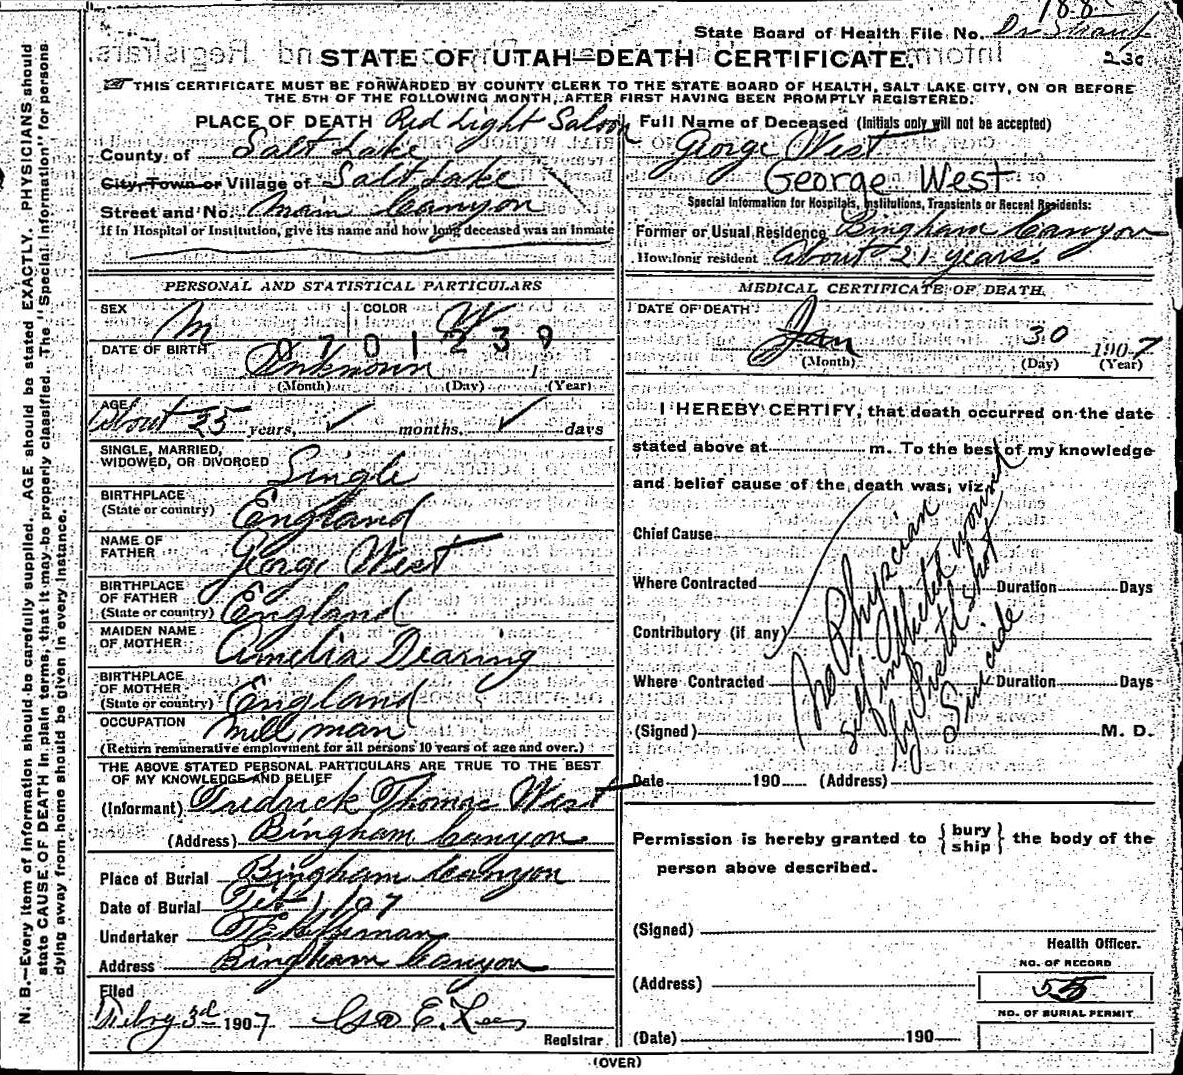 188
State Board of Health File No. Dr Straup
230
STATE OF UTAH—DEATH CERTIFICATE.
THIS CERTIFICATE MUST BE FORWARDED BY COUNTY CLERK TO THE STATE BOARD OF HEALTH, SALT LAKE CITY, ON OR BEFORE
THE 5TH OF THE FOLLOWING MONTH, AFTER FIRST HAVING BEEN PROMPTLY REGISTERED.
PLACE OF DEATH Red Light Saloon
County of Salt Lake
City, Town or Village of Salt Lake
Street and No. Main Canyon
If in Hospital or Institution, give its name and how long deceased was an Inmate
Full Name of Deceased (Initials only will not be accepted)
George West
George West
Special Information for Hospitals, Institutions, Transients or Recent Residents:
Former or Usual Residence Bingham Canyon
How long resident About 21 years.
PERSONAL AND STATISTICAL PARTICULARS
SEX M COLOR W
0701239
DATE OF BIRTH Unknown 1
(Month) (Day) (Year)
AGE About 25 years, ✓ months, ✓ days
SINGLE, MARRIED,
WIDOWED, OR DIVORCED Single
BIRTHPLACE
(State or country) England
NAME OF
FATHER George West
BIRTHPLACE
OF FATHER
(State or country) England
MAIDEN NAME
OF MOTHER Amelia Dearing
BIRTHPLACE
OF MOTHER
(State or country) England
OCCUPATION mill man
(Return remunerative employment for all persons 10 years of age and over.)
THE ABOVE STATED PERSONAL PARTICULARS ARE TRUE TO THE BEST
OF MY KNOWLEDGE AND BELIEF
(Informant) Fredrick Thomas West
(Address) Bingham Canyon
Place of Burial Bingham Canyon
Date of Burial Feb 1 / 07
Undertaker
Address Bingham Canyon
Filed
Febry 3d 1907 Geo E. Lees
Registrar
MEDICAL CERTIFICATE OF DEATH
DATE OF DEATH
Jan 30 1907
(Month) (Day) (Year)
I HEREBY CERTIFY, that death occurred on the date
stated above at m. To the best of my knowledge
and belief cause of the death was, viz
Chief Cause
Where Contracted Duration Days
Contributory (if any)
Where Contracted Duration Days
(Signed) M. D.
No Physician
Self inflicted wound
by Pistol shot
Suicide
Date 190 (Address)
Permission is hereby granted to {bury
ship} the body of the
person above described.
(Signed)
Health Officer.
NO. OF RECORD
(Address) 55
NO. OF BURIAL PERMIT
(Date) 190
(OVER)
N. B.—Every item of information should be carefully supplied. AGE should be stated EXACTLY. PHYSICIANS should
state CAUSE OF DEATH in plain terms, that it may be properly classified. The "Special Information" for persons
dying away from home should be given in every instance.